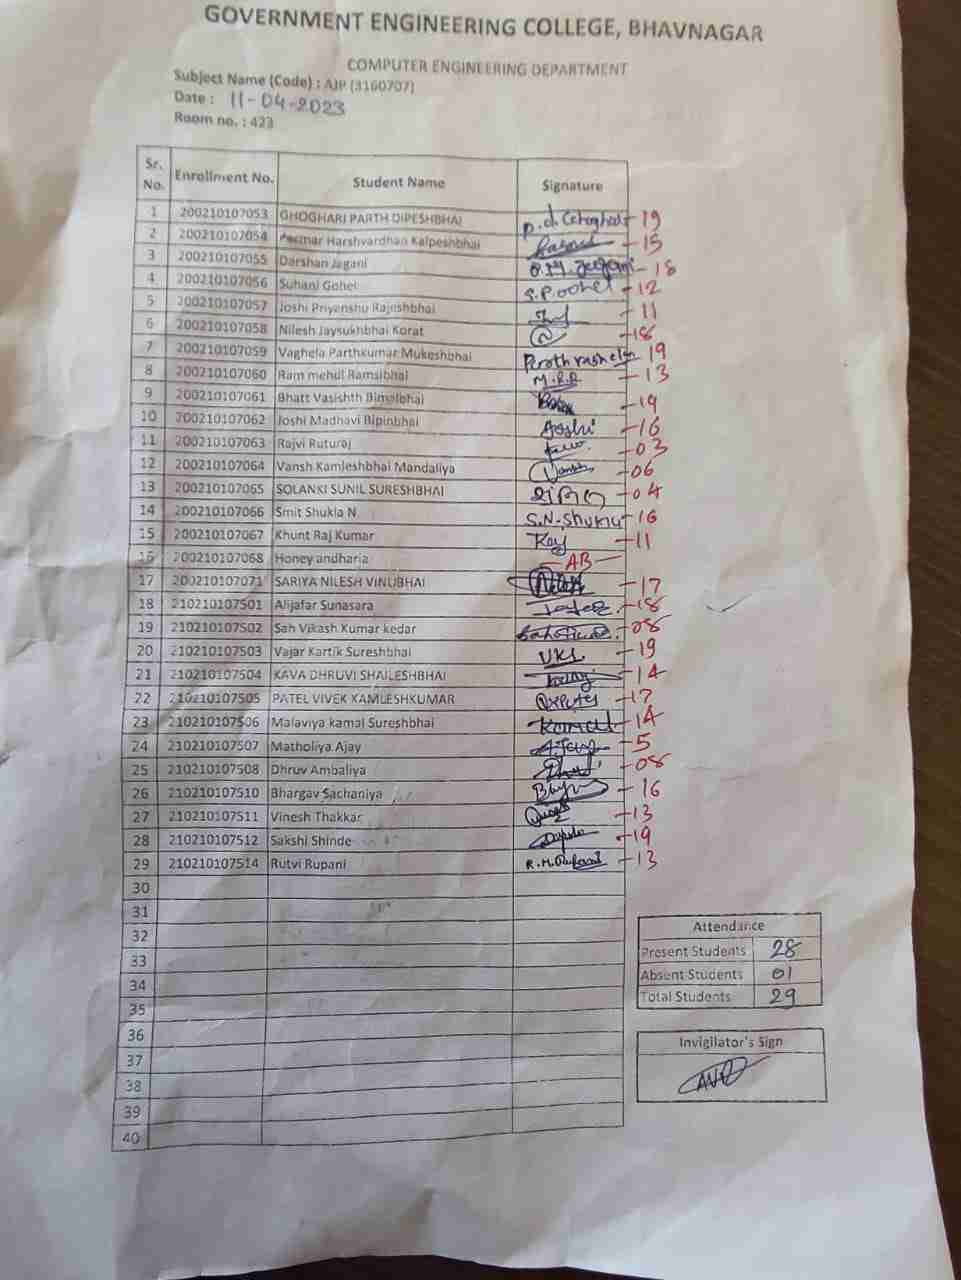 GOVERNMENT ENGINEERING COLLEGE, BHAVNAGAR
COMPUTER ENGINEERING DEPARTMENT
Subject Name (Code) : AJP (3160707)
Date : 11-04-2023
Room no. : 423
Sr. No. Enrollment No. Student Name Signature
1 200210107053 GHOGHARI PARTH DIPESHBHAI - 19
2 200210107054 Parmar Harshvardhan Kalpeshbhai - 15
3 200210107055 Darshan Jagani - 18
4 200210107056 Suhani Gohel S.P.Gohel - 12
5 200210107057 Joshi Priyanshu Rajeshbhai - 11
6 200210107058 Nilesh Jaysukhbhai Korat - 18
7 200210107059 Vaghela Parthkumar Mukeshbhai 19
8 200210107060 Ram mehul Ramsibhai M.R.R - 13
9 200210107061 Bhatt Vasishth Bimalbhai - 19
10 200210107062 Joshi Madhavi Bipinbhai Joshi - 16
11 200210107063 Rajvi Ruturaj - 03
12 200210107064 Vansh Kamleshbhai Mandaliya Vansh - 06
13 200210107065 SOLANKI SUNIL SURESHBHAI - 04
14 200210107066 Smit Shukla N. S.N.Shukla - 16
15 200210107067 Khunt Raj Kumar Raj - 11
16 200210107068 Honey andharia - AB -
17 200210107071 SARIYA NILESH VINUBHAI - 17
18 210210107501 Alijafar Sunasara - 18
19 210210107502 Sah Vikash Kumar kedar - 08
20 210210107503 Vajar Kartik Sureshbhai - 19
21 210210107504 KAVA DHRUVI SHAILESHBHAI - 14
22 210210107505 PATEL VIVEK KAMLESHKUMAR - 17
23 210210107506 Malaviya kamal Sureshbhai Kamal - 14
24 210210107507 Matholiya Ajay - 5
25 210210107508 Dhruv Ambaliya - 08
26 210210107510 Bhargav Sachaniya - 16
27 210210107511 Vinesh Thakkar - 13
28 210210107512 Sakshi Shinde - 19
29 210210107514 Rutvi Rupani R.M.Rupani - 13
30
31
32
33
34
35
36
37
38
39
40
Attendance
Present Students 28
Absent Students 01
Total Students 29
Invigilator's Sign